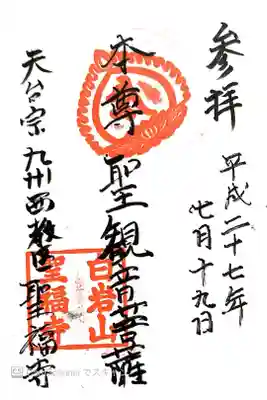 参拝
平成二十七年
七月十九日
本尊 聖観音菩薩
天台宗 九州西教区 聖福寺
白岩山
聖福寺